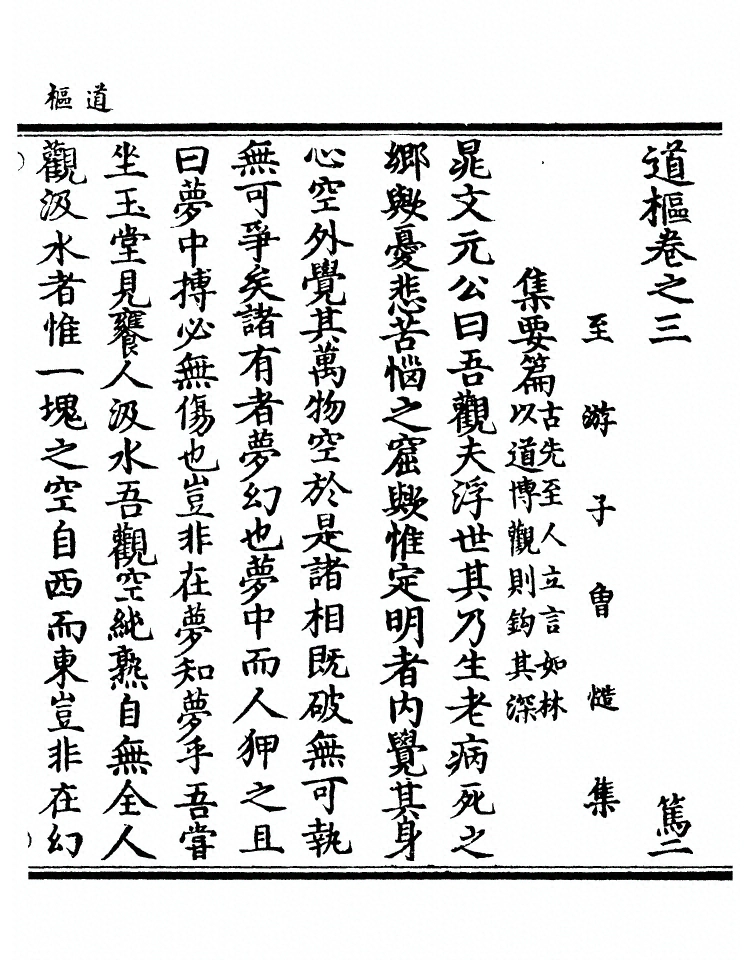 道樞
道樞卷之三 篤二
至游子曾慥集
集要篇 古先至人立言如林
以道博觀則鈎其深
晁文元公曰吾觀夫浮世其乃生老病死之
鄉歟憂悲苦惱之窟歟惟定明者內覺其身
心空外覺其萬物空於是諸相既破無可執
無可爭矣諸有者夢幻也夢中而人狎之且
曰夢中搏必無傷也豈非在夢知夢乎吾嘗
坐玉堂見饔人汲水吾觀空純熟自無全人
觀汲水者惟一塊之空自西而東豈非在幻